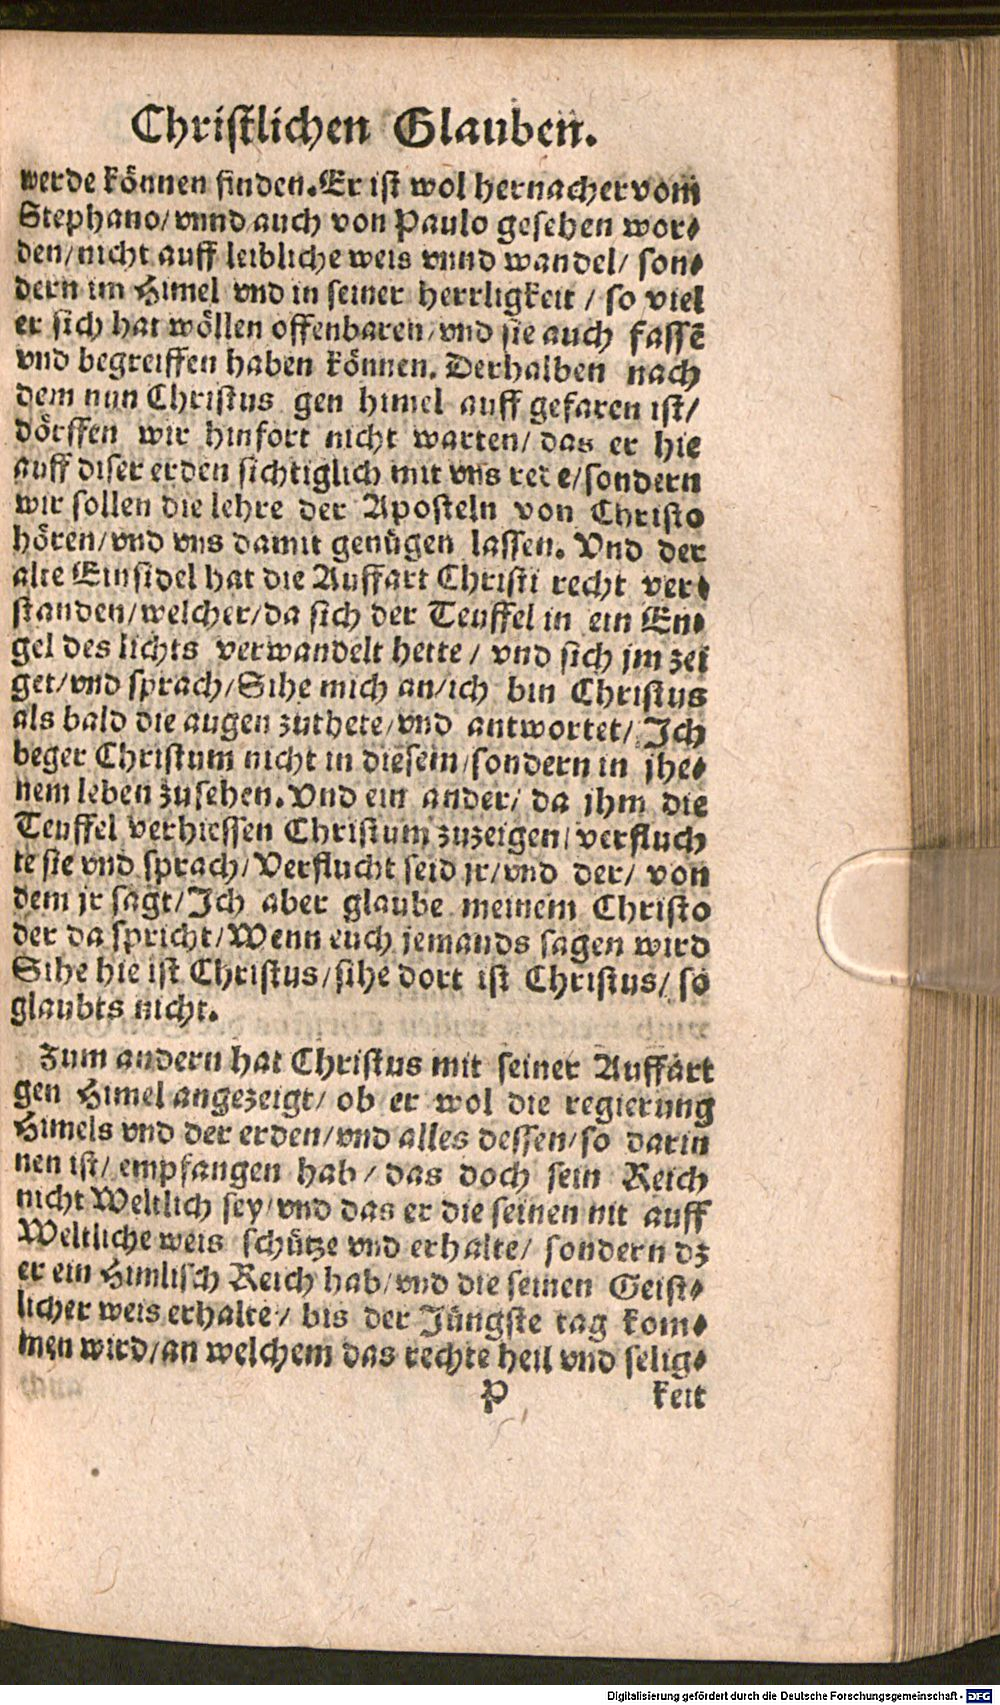 Christlichen Glauben.
werde können finden. Er ist wol hernacher vom
Stephano/ vnnd auch von Paulo gesehen wor⸗
den/ nicht auff leibliche weis vnnd wandel/ son⸗
dern im Himel vnd in seiner herrligkeit / so viel
er sich hat wöllen offenbaren/ vnd sie auch fassē
vnd begreiffen haben können. Derhalben nach
dem nun Christus gen himel auff gefaren ist/
dörffen wir hinfort nicht warten/ das er hie
auff diser erden sichtiglich mit vns rede/ sondern
wir sollen die lehre der Aposteln von Christo
hören/ vnd vns damit genügen lassen. Vnd der
alte Einsidel hat die Auffart Christi recht ver⸗
standen/ welcher/ da sich der Teuffel in ein En⸗
gel des lichts verwandelt hette / vnd sich jm zei
get/ vnd sprach/ Sihe mich an/ ich bin Christus
als bald die augen zuthete/ vnd antwortet/ Ich
beger Christum nicht in diesem/ sondern in jhe⸗
nem leben zusehen. Vnd ein ander/ da jhm die
Teuffel verhiessen Christum zuzeigen/ verfluch
te sie vnd sprach/ Verflucht seid jr/ vnd der/ von
dem jr sagt/ Ich aber glaube meinem Christo
der da spricht/ Wenn euch jemands sagen wird
Sihe hie ist Christus/ sihe dort ist Christus/ so
glaubts nicht.
Zum andern hat Christus mit seiner Auffart
gen Himel angezeigt/ ob er wol die regierung
Himels vnd der erden/ vnd alles dessen/ so darin
nen ist/ empfangen hab / das doch sein Reich
nicht Weltlich sey/ vnd das er die seinen nit auff
Weltliche weis schütze vnd erhalte/ sondern dz
er ein Himlisch Reich hab/ vnd die seinen Geist⸗
licher weis erhalte / bis der Jüngste tag kom⸗
men wird/ an welchem das rechte heil vnd selig⸗
P keit
Digitalisierung gefördert durch die Deutsche Forschungsgemeinschaft - DFG